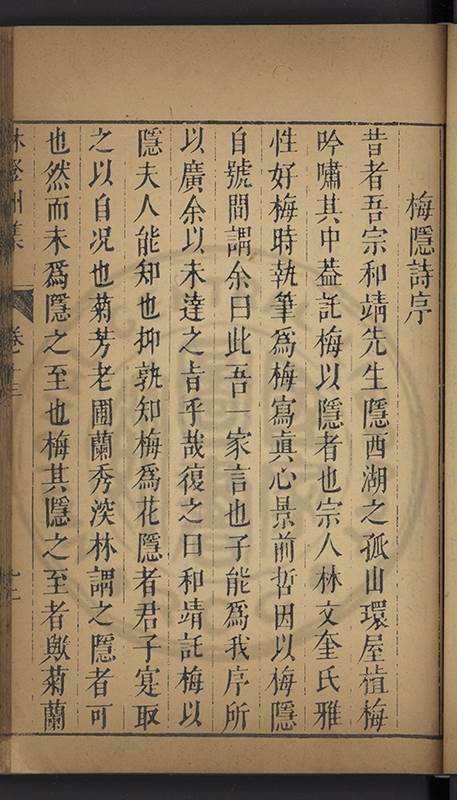 梅隱詩序
昔者吾宗和靖先生隱西湖之孤山環屋植梅
吟嘯其中葢託梅以隱者也宗人林文奎氏雅
性好梅時執筆爲梅寫眞心景前哲因以梅隱
自號間謂余曰此吾一家言也子能爲我序所
以廣余以未達之旨乎哉復之曰和靖託梅以
隱夫人能知也抑孰知梅爲花隱者君子寔取
之以自况也菊芳老圃蘭秀深林謂之隱者可
也然而未爲隱之至也梅其隱之至者歟菊蘭
林登州集 卷十三